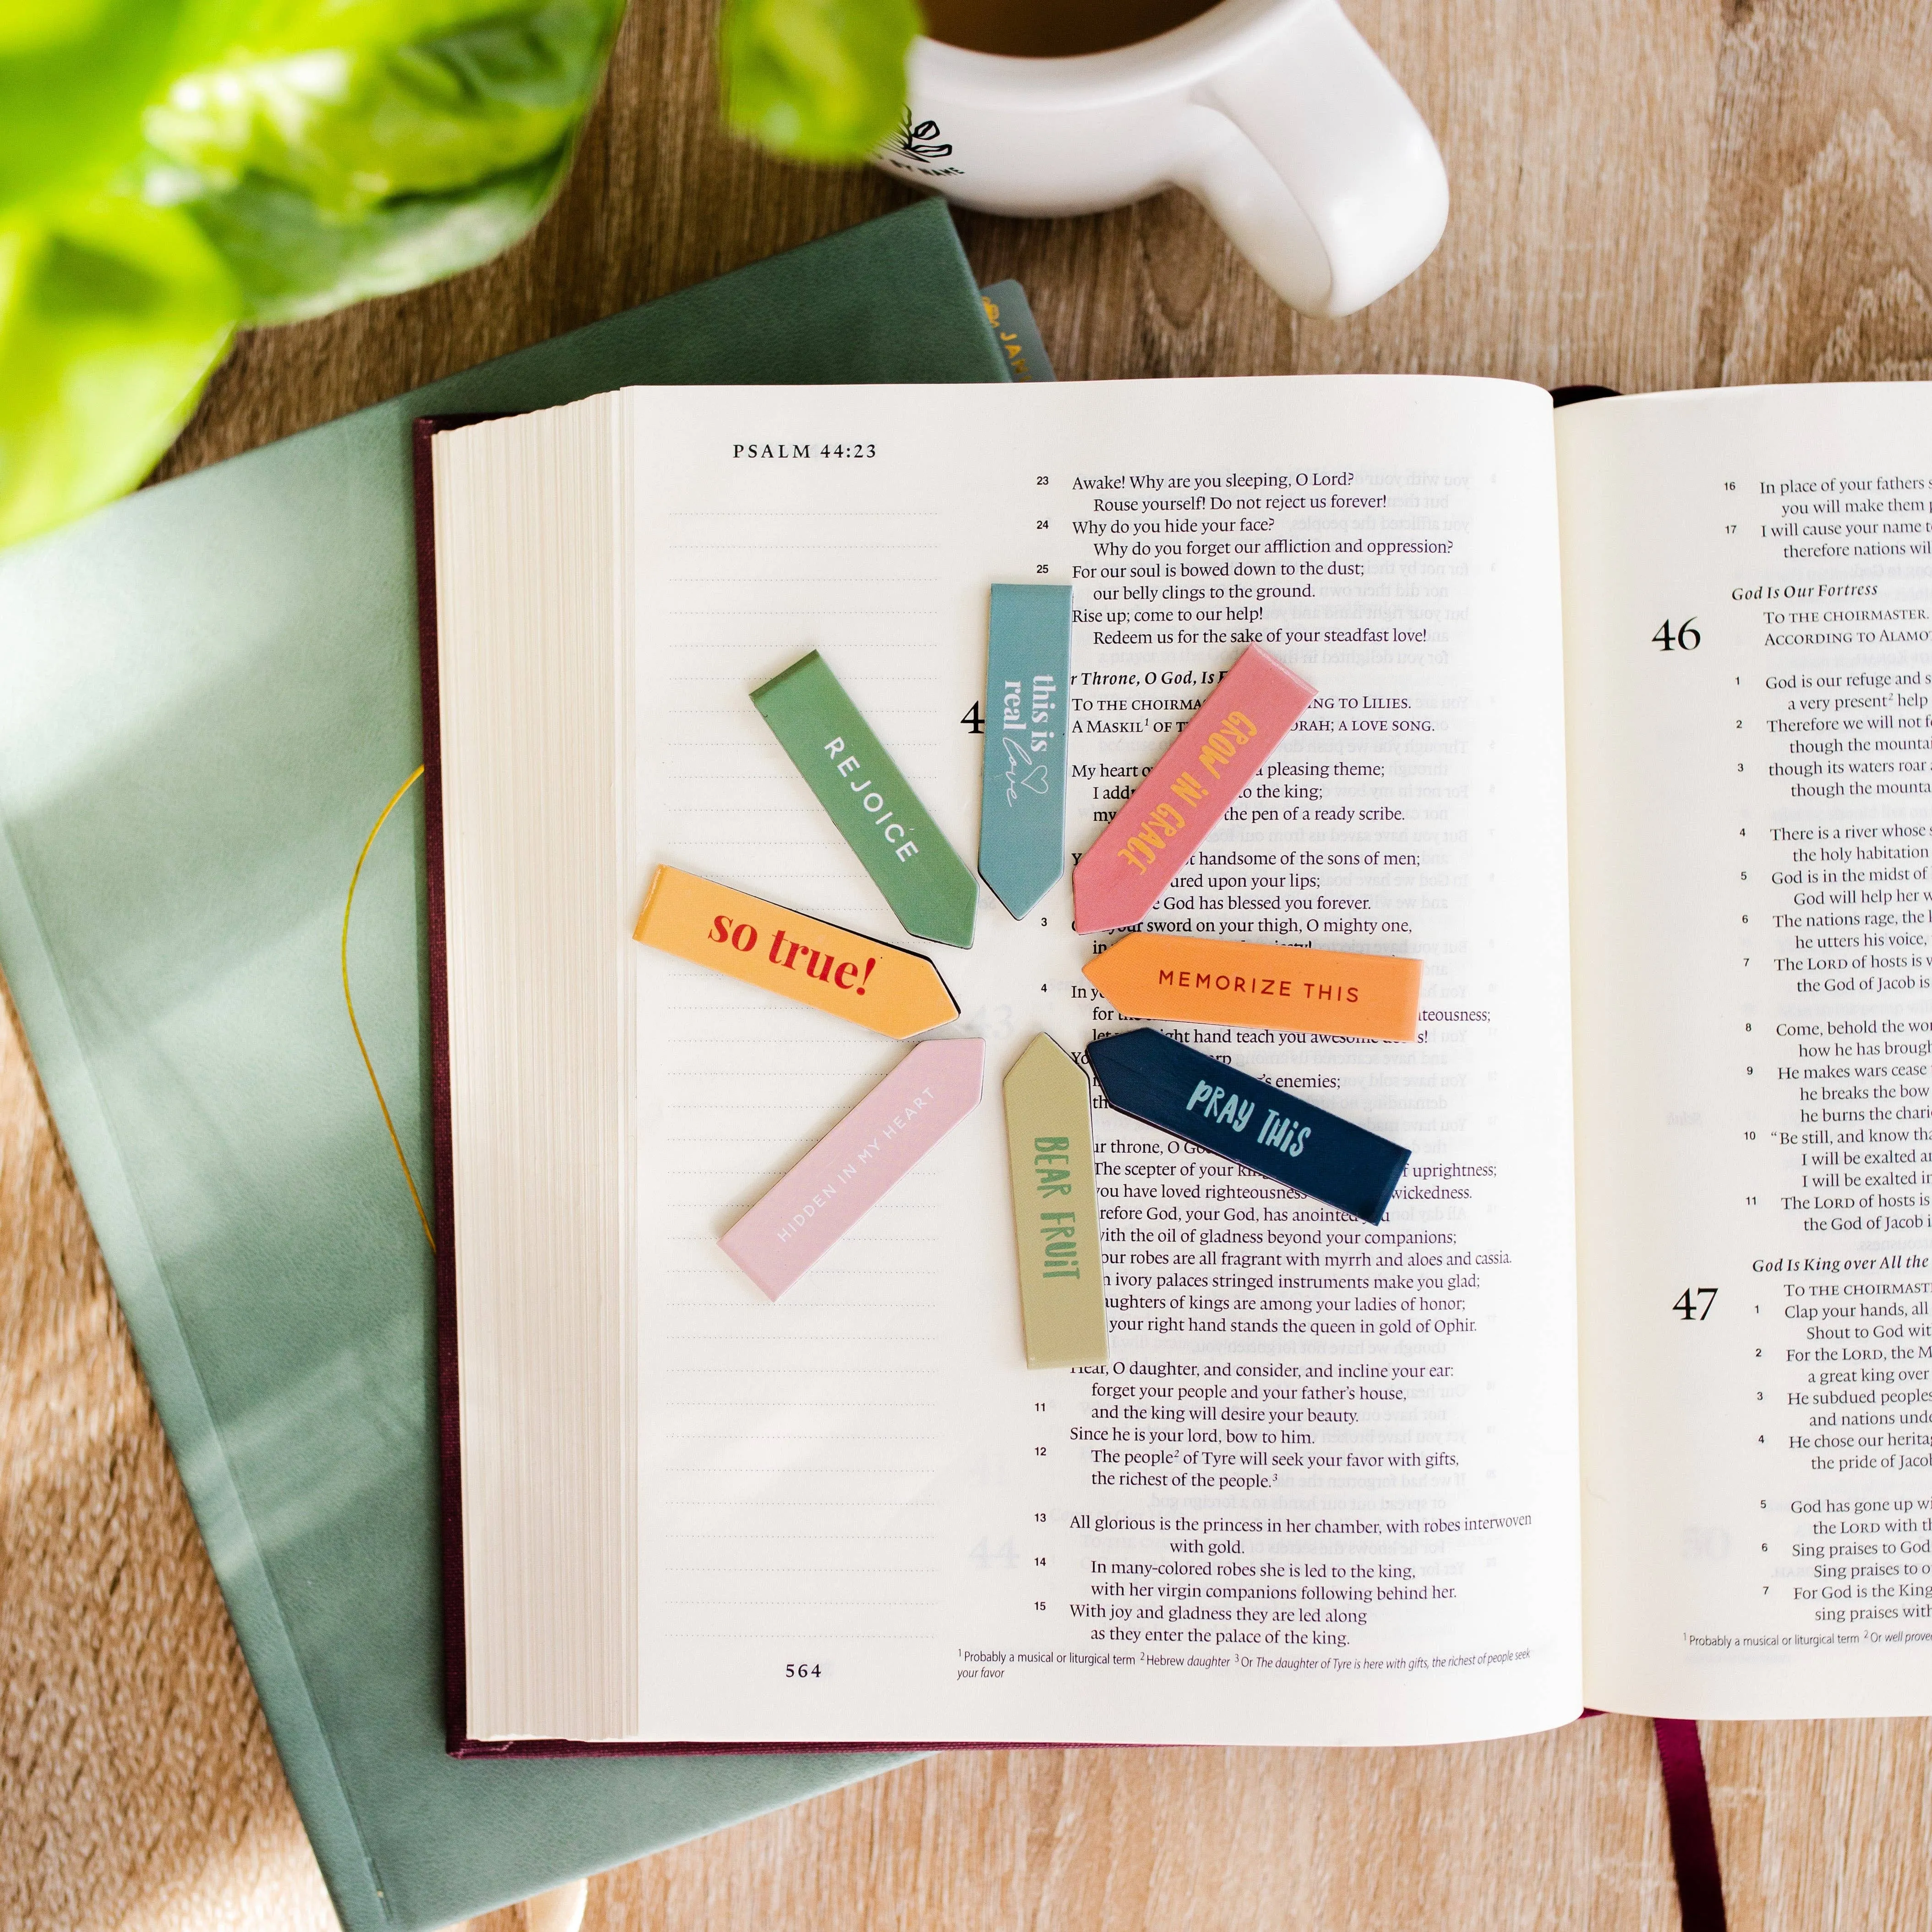 MY NAME
JAN
PSALM 44:23
23 Awake! Why are you sleeping, O Lord?
Rouse yourself! Do not reject us forever!
24 Why do you hide your face?
Why do you forget our affliction and oppression?
25 For our soul is bowed down to the dust;
our belly clings to the ground.
Rise up; come to our help!
Redeem us for the sake of your steadfast love!
r Throne, O God, Is
4
TO THE CHOIRMA NG TO LILIES.
A MASKIL1 OF RAH; A LOVE SONG.
My heart pleasing theme;
I add to the king;
my the pen of a ready scribe.
handsome of the sons of men;
ured upon your lips;
God has blessed you forever.
3 your sword on your thigh, O mighty one,
in
4 In
for teousness;
let ght hand teach you awesome
's enemies;
ur throne, O
The scepter of your f uprightness;
you have loved righteousness wickedness.
refore God, your God, has anointed
with the oil of gladness beyond your companions;
our robes are all fragrant with myrrh and aloes and cassia.
ivory palaces stringed instruments make you glad;
aughters of kings are among your ladies of honor;
your right hand stands the queen in gold of Ophir.
Hear, O daughter, and consider, and incline your ear:
forget your people and your father's house,
11 and the king will desire your beauty.
Since he is your lord, bow to him.
12 The people2 of Tyre will seek your favor with gifts,
the richest of the people.3
13 All glorious is the princess in her chamber, with robes interwoven
with gold.
14 In many-colored robes she is led to the king,
with her virgin companions following behind her.
15 With joy and gladness they are led along
as they enter the palace of the king.
1 Probably a musical or liturgical term 2 Hebrew daughter 3 Or The daughter of Tyre is here with gifts, the richest of people seek
your favor
564
REJOICE
this is
real love
GROW IN GRACE
so true!
MEMORIZE THIS
HIDDEN IN MY HEART
BEAR FRUIT
PRAY THIS
16 In place of your fathers
you will make them
17 I will cause your name
therefore nations
God Is Our Fortress
46
TO THE CHOIRMASTER.
ACCORDING TO ALAMO
1 God is our refuge and
a very present2 help
2 Therefore we will not
though the
3 though its waters roar
though the
4 There is a river whose
the holy habitation
5 God is in the midst of
God will help her
6 The nations rage, the
he utters his voice,
7 The LORD of hosts is
the God of Jacob is
8 Come, behold the
how he has
9 He makes wars cease
he breaks the bow
he burns the
10 "Be still, and know
I will be exalted
I will be exalted
11 The LORD of hosts is
the God of Jacob
God Is King over All the
47
TO THE
1 Clap your hands, all
Shout to God
2 For the LORD, the
a great king over
3 He subdued peoples
and nations
4 He chose our
the pride of
5 God has gone up
the LORD with
6 Sing praises to God
Sing praises to
7 For God is the King
sing praises
1 Probably a musical or liturgical term 2 Or well